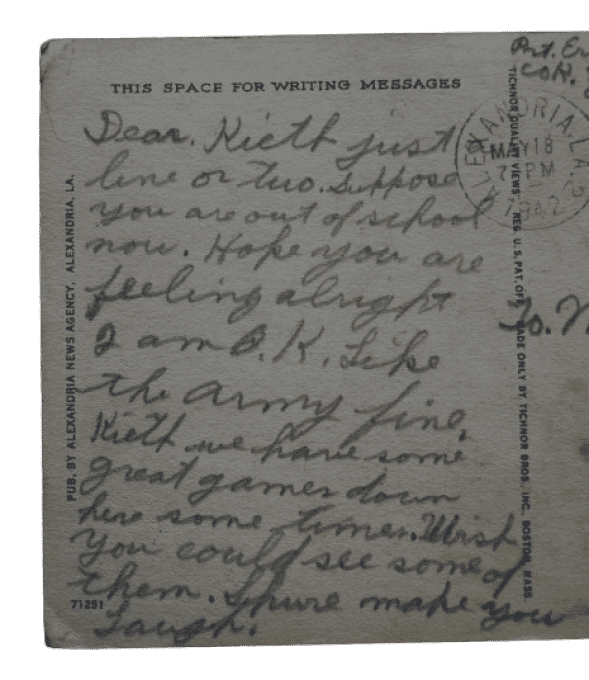 THIS SPACE FOR WRITING MESSAGES
Dear. Kieth just
line or two. Suppose
you are out of school
now. Hope you are
feeling alright
I am O.K. Like
the army fine.
Kieth we have some
great games down
here some times. Wish
you could see some of
them. Shure make you
Laugh.
71251
PUB. BY ALEXANDRIA NEWS AGENCY, ALEXANDRIA, LA.
TICHNOR QUALITY VIEWS REG. U. S. PAT. OFF. MADE ONLY BY TICHNOR BROS., INC., BOSTON, MASS.
Pvt.
Co.
ALEXANDRIA, LA.
MAY 18
7 PM
1942
To.